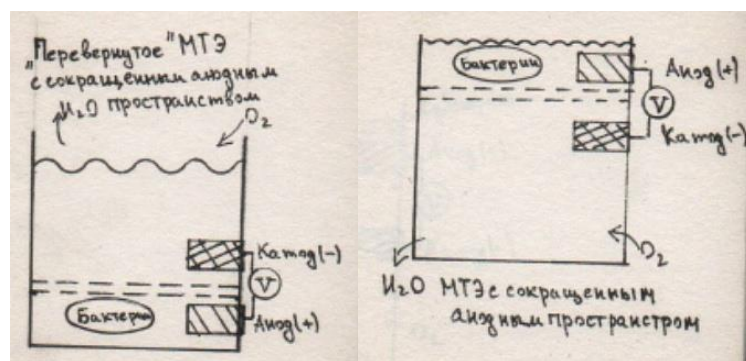 "Перевернутое" МТЭ
с сокращенным анодным
H₂O пространством
O₂
Катод(-)
V
Бактерии
Анод(+)
Бактерии
Анод(+)
V
Катод(-)
O₂
H₂O МТЭ с сокращенным
анодным пространстром